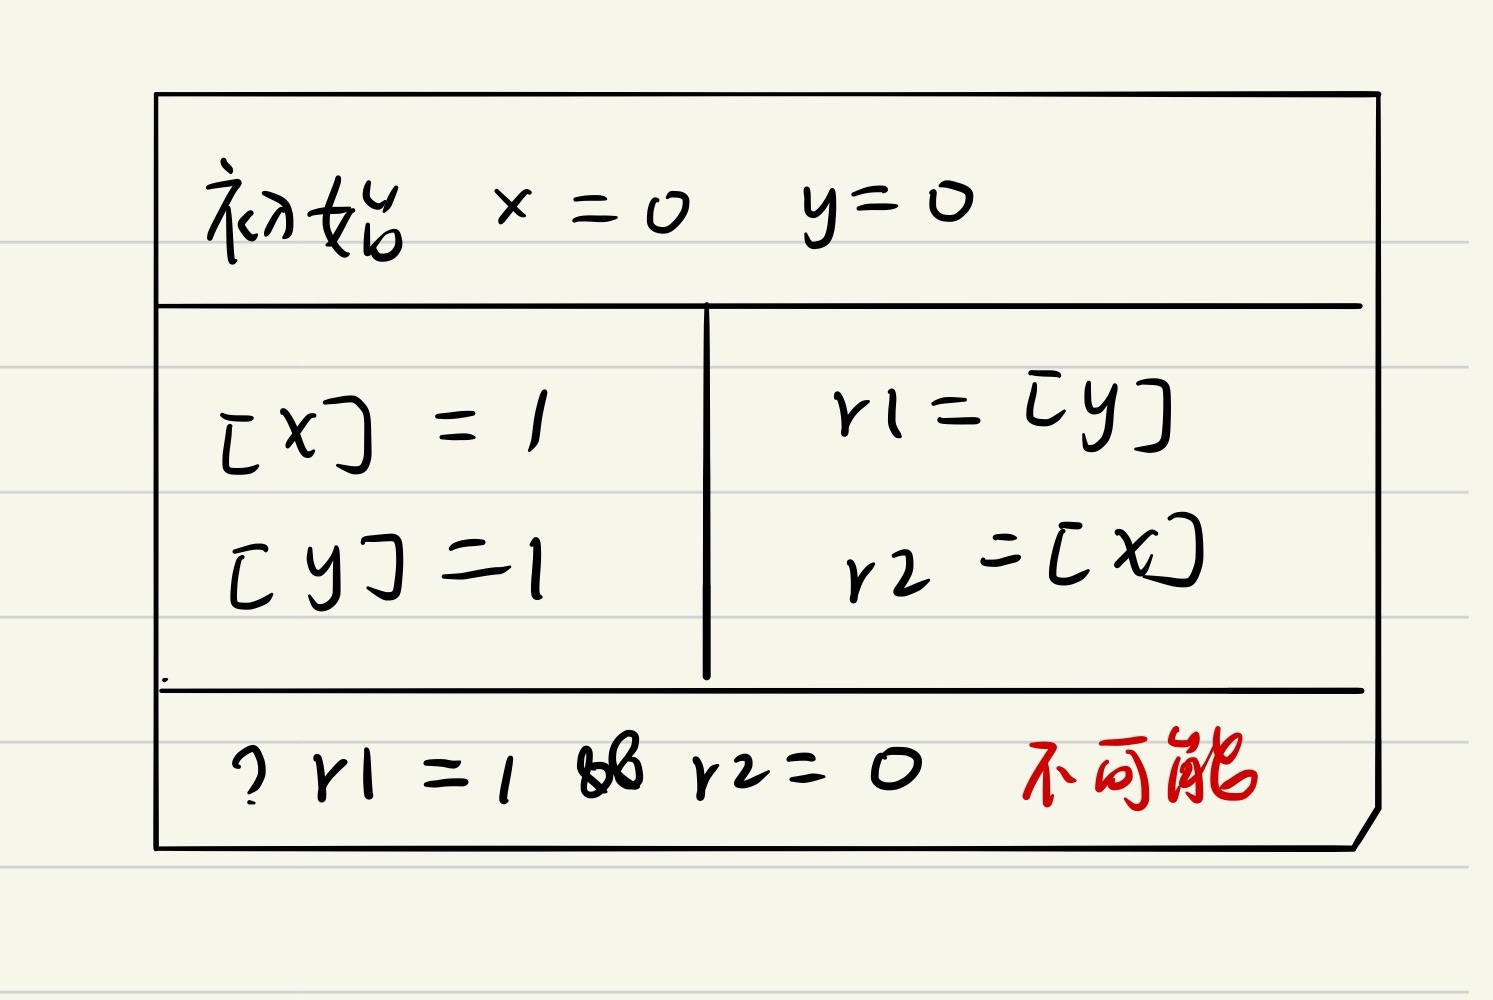 初始 x = 0 y = 0
[x] = 1
[y] = 1
r1 = [y]
r2 = [x]
? r1 = 1 && r2 = 0 不可能